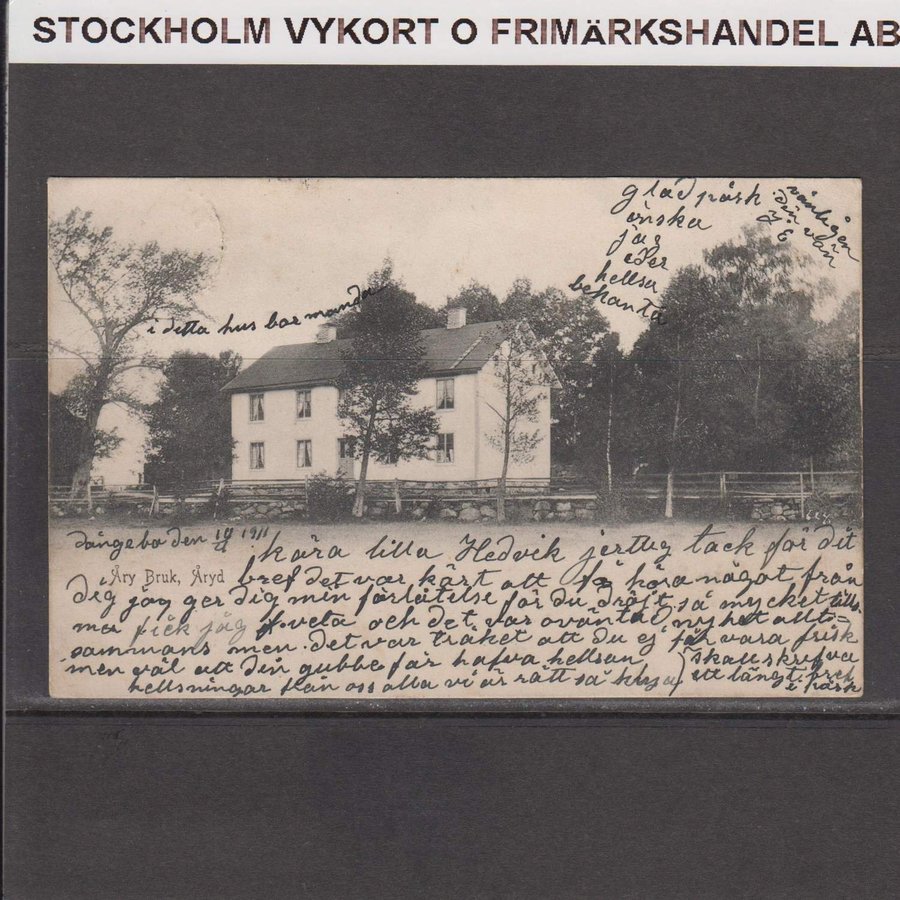 STOCKHOLM VYKORT O FRIMÄRKSHANDEL AB
glad påsk
önska
jag
eder
hellsa
bekanta
vänligen
din vän
i detta hus bor manda
Dångebo den 10/4 1911
kära lilla Hedvik jerttlig tack för dit
Åry Bruk, Åryd
bref det var kärt att få höra något från
Dig jag ger dig min förlåtelse för du dröjt så mycket tills
mer fick jag veta och det var oväntad nyhet allti=
sammans men. det var tråket att du ej får vara frisk
men väl att din gubbe får hafva hellsan
skall skrefva
ett långt bref
i påsk
hellsningar från oss alla vi är rätt så